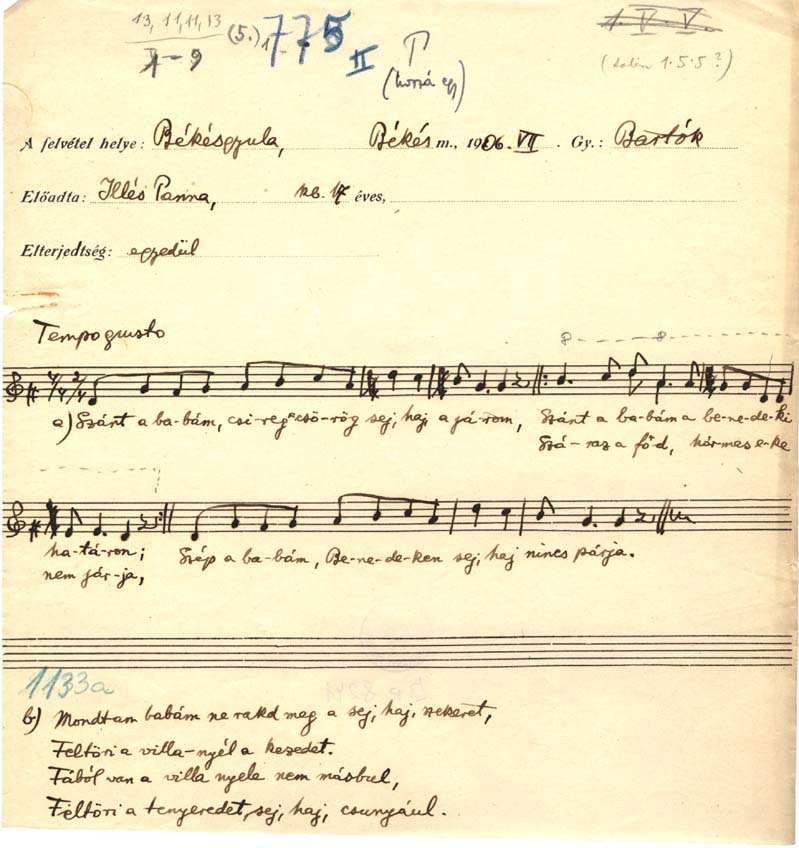 13, 11, 11, 13
(5.) 1
775
II
1. V. V.
(talán 1·5·5?)
(hozzá egy)
A felvétel helye: Békésgyula, Békés m., 1906. VII. Gy.: Bartók
Előadta: Illés Panna, kb. 17 éves,
Elterjedtség: egyedül
Tempo giusto
8 8
4/4 2/4
a) Szánt a ba-bám, csi-reg-csö-rög sej, haj, a já-rom, Szánt a ba-bám a be-ne-de-ki
Szá-raz a főd, hármas e-ke
ha-tá-ron; Szép a ba-bám, Be-ne-de-ken sej, haj nincs párja.
nem jár-ja,
1133a
b) Mondtam babám ne rakd meg a sej, haj, szekeret,
Feltöri a villa-nyél a kezedet.
Fából van a villa nyele nem másbul,
Feltöri a tenyeredet, sej, haj, csunyául.